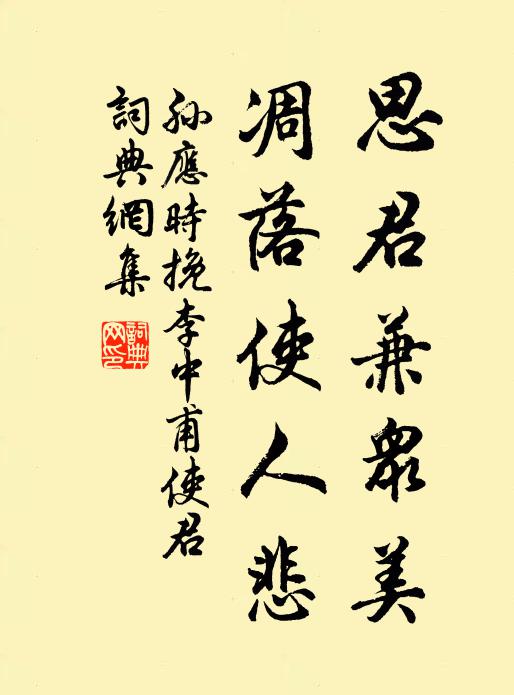 思君兼眾美
凋落使人悲
孙應時挽李中甫使君
詞典網集
詞典網印